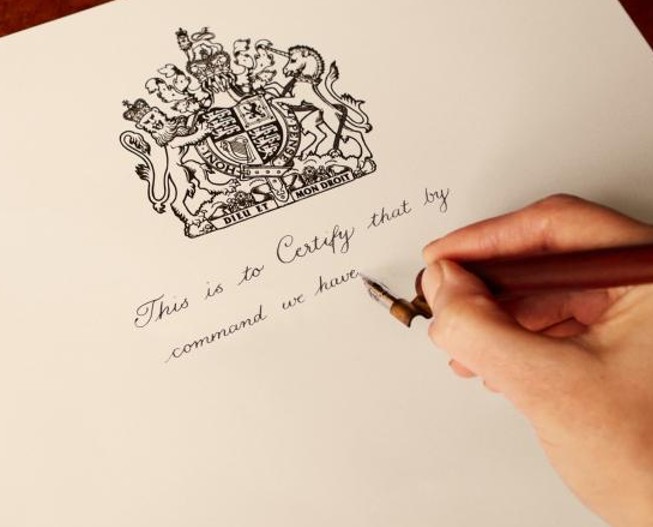 HONI
PENSE
DIEU ET MON DROIT
This is to Certify that by
command we have